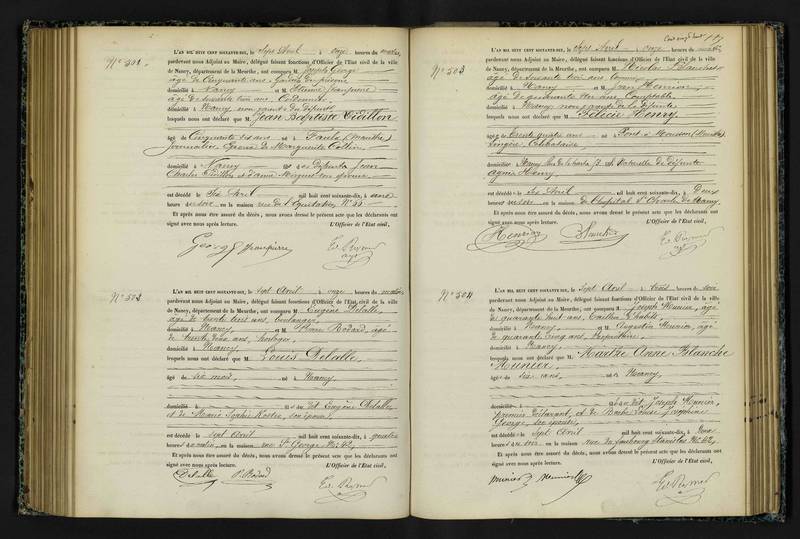 N° 501
L'AN MIL HUIT CENT SOIXANTE-DIX, le sept Avril à onze heures du matin,
pardevant nous Adjoint au Maire, délégué faisant fonctions d'Officier de l'Etat civil de la ville
de Nancy, département de la Meurthe, ont comparu M. Joseph George
âgé de Cinquante ans,
domicilié à Nancy et M. Etienne Jeanpierre
âgé de soixante trois ans, Cordonnier
domicilié à Nancy, non parents du défunt
lesquels nous ont déclaré que M. Jean Baptiste
âgé de Cinquante six ans né à (Meurthe)
journalier Epoux de Marguerite Collin
domicilié à Nancy des défunts Jean
Charles et d'anne son épouse
est décédé le six Avril mil huit cent soixante-dix, à
heures du soir en la maison rue de l'Equitation, N°
Et après nous être assuré du décès, nous avons dressé le présent acte que les déclarants ont
signé avec nous après lecture. L'Officier de l'Etat civil,
George Jeanpierre
N° 502
L'AN MIL HUIT CENT SOIXANTE-DIX, le sept Avril à onze heures du matin,
pardevant nous Adjoint au Maire, délégué faisant fonctions d'Officier de l'Etat civil de la ville
de Nancy, département de la Meurthe, ont comparu M. Eugène Delalle,
âgé de trente trois ans, boulanger,
domicilié à Nancy et M. Pierre Rodard, âgé
de trente ans, horloger,
domicilié à Nancy
lesquels nous ont déclaré que M. Louis Delalle,
âgé de six mois, né à Nancy,
domicilié à dit Eugène Delalle,
et de Marie Sophie son épouse,
est décédé le sept Avril mil huit cent soixante-dix, à quatre
heures du matin, en la maison rue St George N° 42,
Et après nous être assuré du décès, nous avons dressé le présent acte que les déclarants ont
signé avec nous après lecture. L'Officier de l'Etat civil,
Delalle P. Rodard
N° 503
L'AN MIL HUIT CENT SOIXANTE-DIX, le sept Avril à onze heures du matin
pardevant nous Adjoint au Maire, délégué faisant fonctions d'Officier de l'Etat civil de la ville
de Nancy, département de la Meurthe, ont comparu M. Nicolas
âgé de soixante trois ans,
domicilié à Nancy et M. Jean Henrion,
âgé de quarante un ans, Comptable,
domicilié à Nancy, non parents de la défunte
lesquels nous ont déclaré que M. Félicie Henry,
âgée de trente quatre ans née à Pont à Mousson (Meurthe)
Lingère, Célibataire
domiciliée à Nancy naturelle de défunte
Agnès Henry
est décédée le six Avril mil huit cent soixante-dix, à Deux
heures du soir, en la maison de l'hôpital St Charles de Nancy,
Et après nous être assuré du décès, nous avons dressé le présent acte que les déclarants ont
signé avec nous après lecture. L'Officier de l'Etat civil,
Henrion
N° 504
L'AN MIL HUIT CENT SOIXANTE-DIX, le sept Avril à trois heures du soir
pardevant nous Adjoint au Maire, délégué faisant fonctions d'Officier de l'Etat civil de la ville
de Nancy, département de la Meurthe, ont comparu M. Joseph Munier, âgé
de quarante huit ans, tailleur d'habits,
domicilié à Nancy, et M. Augustin Munier, âgé
de quarante cinq ans,
domicilié à Nancy,
lesquels nous ont déclaré que M. Marthe Anne Blanche
Munier,
âgée de six ans, née à Nancy,
domicilié à dit Joseph Munier,
premier déclarant, et de Barbe Louise Joséphine
George, son épouse,
est décédée le sept Avril mil huit cent soixante-dix, à Une
heure du soir, en la maison rue du faubourg Stanislas N° 42,
Et après nous être assuré du décès, nous avons dressé le présent acte que les déclarants ont
signé avec nous après lecture. L'Officier de l'Etat civil,
Munier Munier